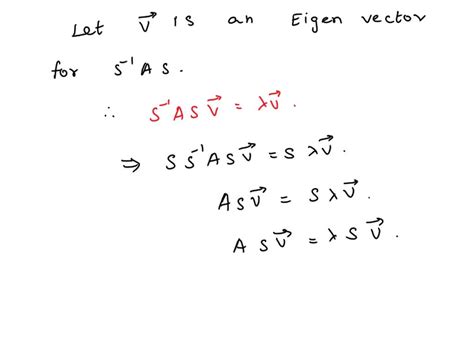 Let v⃗ is an Eigen vector
for S⁻¹AS.
∴ S⁻¹ASv⃗ = λv⃗.
⇒ SS⁻¹ASv⃗ = Sλv⃗.
ASv⃗ = Sλv⃗.
ASv⃗ = λSv⃗.